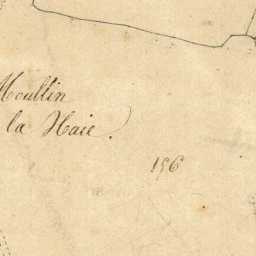 Moullin
la Haie.
156